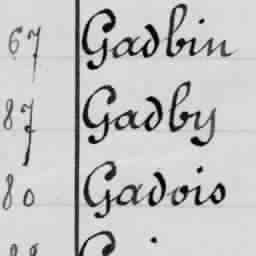 67 Gadbin
87 Gadby
80 Gadois